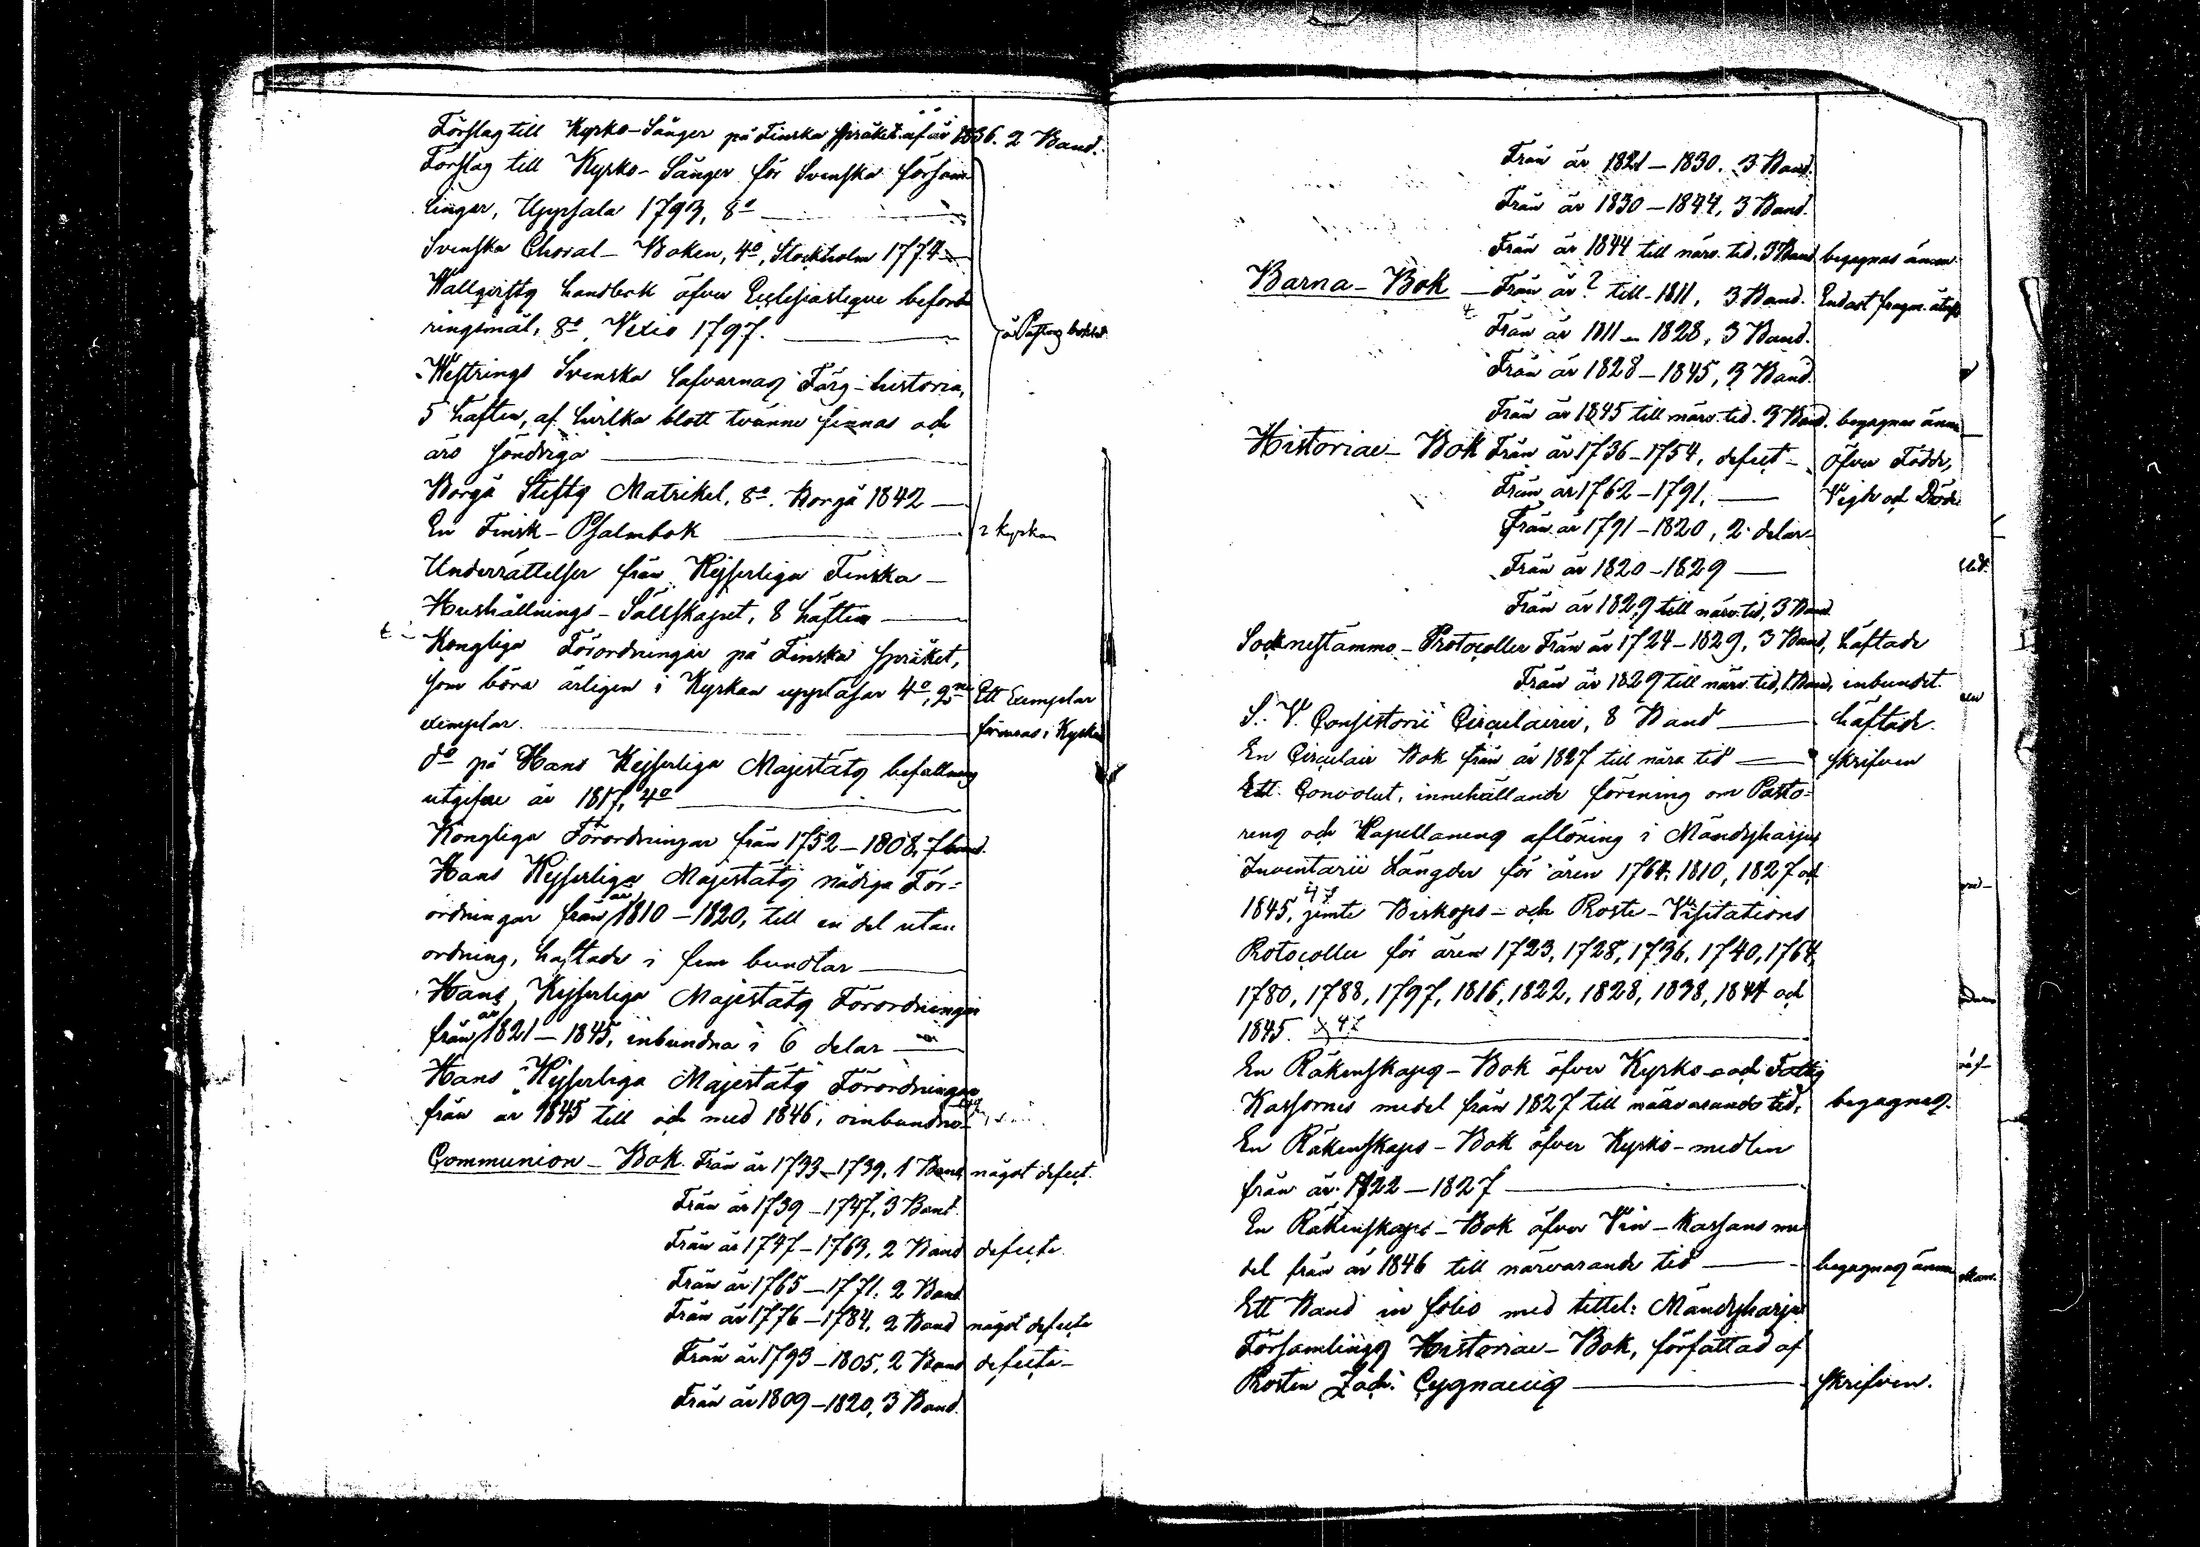 Förslag till Kyrko-Sånger på Finska språket af år 1836. 2 Band.
Förslag till Kyrko-Sånger för Svenska försam
lingar, Uppsala 1793, 8o
Svenska Choral-Boken, 4o, Stockholm 1774
Wallqvists handbok öfver Ecclesiastique beford
ringsmål, 8o, Vexio 1797.
Westrings Svenska lafvarnas Färg-historia,
5 häften, af hvilka blott tvänne finnas och
äro söndriga
Borgå Stifts Matrikel, 8o. Borgå 1842
En Finsk-Psalmbok
i kyrkan
Underrättelser från Kejserliga Finska
Hushållnings-Sällskapet, 8 häften
Kongliga Förordningar på Finska språket,
som böra årligen i Kyrkan uppläsas 4o, 2ne
Ett Exemplar
exemplar.
förvaras i Kyrkan
do på Hans Kejserliga Majestäts befallning
utgifne år 1817, 4o
Kongliga Förordningar från 1752-1808, 7 band.
Hans Kejserliga Majestäts nådiga För-
ordningar från år 1810-1820, till en del utan
ordning, häftade i fem bundtar
Hans Kejserliga Majestäts Förordningar
från år 1821-1845, inbundna i 6 delar
Hans Kejserliga Majestäts Förordningar
från år 1845 till och med 1846, oinbundna
Communion-Bok. Från år 1733-1739, 1 Band, något defect.
Från år 1739-1747, 3 Band.
Från år 1747-1763, 2 Band defecte.
Från år 1765-1771, 2 Band
Från år 1776-1784, 2 Band något defecte
Från år 1793-1805, 2 Band defecte-
Från år 1809-1820, 3 Band.
Från år 1821-1830. 3 Band.
Från år 1830-1844, 3 Band.
Från år 1844 till närv. tid, 3 Band begagnas ännu
Barna-Bok - Från år ? till 1811, 3 Band. Endast fragm.
Från år 1811-1828, 3 Band.
Från år 1828-1845, 3 Band.
Från år 1845 till närv. tid. 3 Band. begagnas ännu
Historiae-Bok Från år 1736-1754, defect- öfver Födde,
Från år 1762-1791. Vigde och Döde
Från år 1791-1820, 2 delar
Från år 1820-1829
Från år 1829 till närv. tid, 3 Band
Socknestämmo-Protocoller Från år 1724-1829, 3 Band, häftade
Från år 1829 till närv. tid, 1 Band, inbundet.
S. V. Consistorii Circulairer, 8 Band häftade.
En Circulair Bok från år 1827 till närv. tid skrifven
Ett Convolut, innehållande förening om Pasto-
rens och Kapellanens aflöning i Mändyharju
Inventarii Längder för åren 1764, 1810, 1827 och
1845, jemte Biskops- och Prosts-Visitations
Protocoller för åren 1723, 1728, 1736, 1740, 1764,
1780, 1788, 1797, 1816, 1822, 1828, 1838, 1844 och
1845.
En Räkenskaps-Bok öfver Kyrko- och Fattig
Kassornes medel från 1827 till närvarande tid, begagnas.
En Räkenskaps-Bok öfver Kyrko-medlen
från år 1722-1827
En Räkenskaps-Bok öfver Vin-Kassans me
del från år 1846 till närvarande tid begagnas ännu
Ett Band in folio med tittel: Mändyharju
Församlings Historiae-Bok, författad af
Prosten Zach: Cygnaeus skrifven.